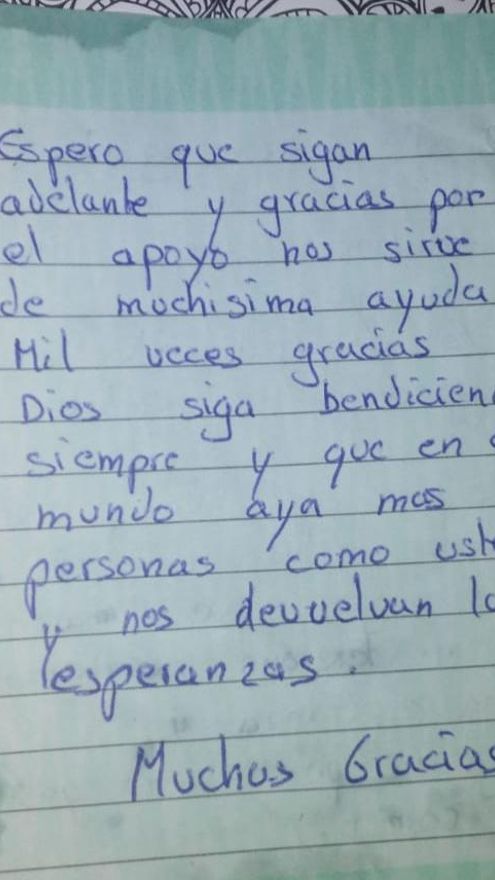 Espero que sigan
adelante y gracias por
el apoyo nos sirve
de muchisima ayuda
Mil veces gracias
Dios siga bendicien
siempre y que en
mundo aya mas
personas como uste
y nos devuelvan la
esperanzas.
Muchas Gracias